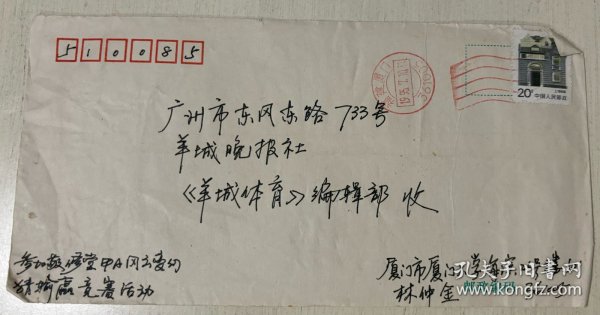 510085
20分
中国人民邮政
广州市东风东路733号
羊城晚报社
《羊城体育》编辑部 收
参加敬修堂甲A风云变幻
猜输赢竞赛活动
厦门市厦门
林仲金
孔夫子旧书网
www.kongfz.com